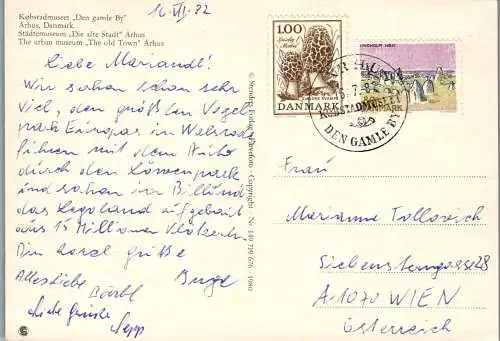 Købstadmuseet „Den gamle By"
Århus, Danmark.
Städtemuseum „Die alte Stadt" Århus
The urban museum „The old Town" Århus
16. VII. 82
Liebe Mariandl!
Wir sahen schon sehr
viel, den größten Vogel
park Europas in Walsrode
fuhren mit dem Auto
durch den Löwenpark
und sahen in Billund
das Legoland aufgebaut
aus 15 Millionen Klötzchen
Grüße
Alles Liebe
Bärbl
Liebe Grüße
Sepp
© Stender Forlag
Copyright Nr. 140 739/676 1980
1.00
Spiselig Morkel
DANMARK
LINDHOLM HØJE
DANMARK
KØBSTADMUSEET
DEN GAMLE BY
Frau
Marianne Tollovisch
Siebensterngasse 28
A-1070 WIEN
Österreich